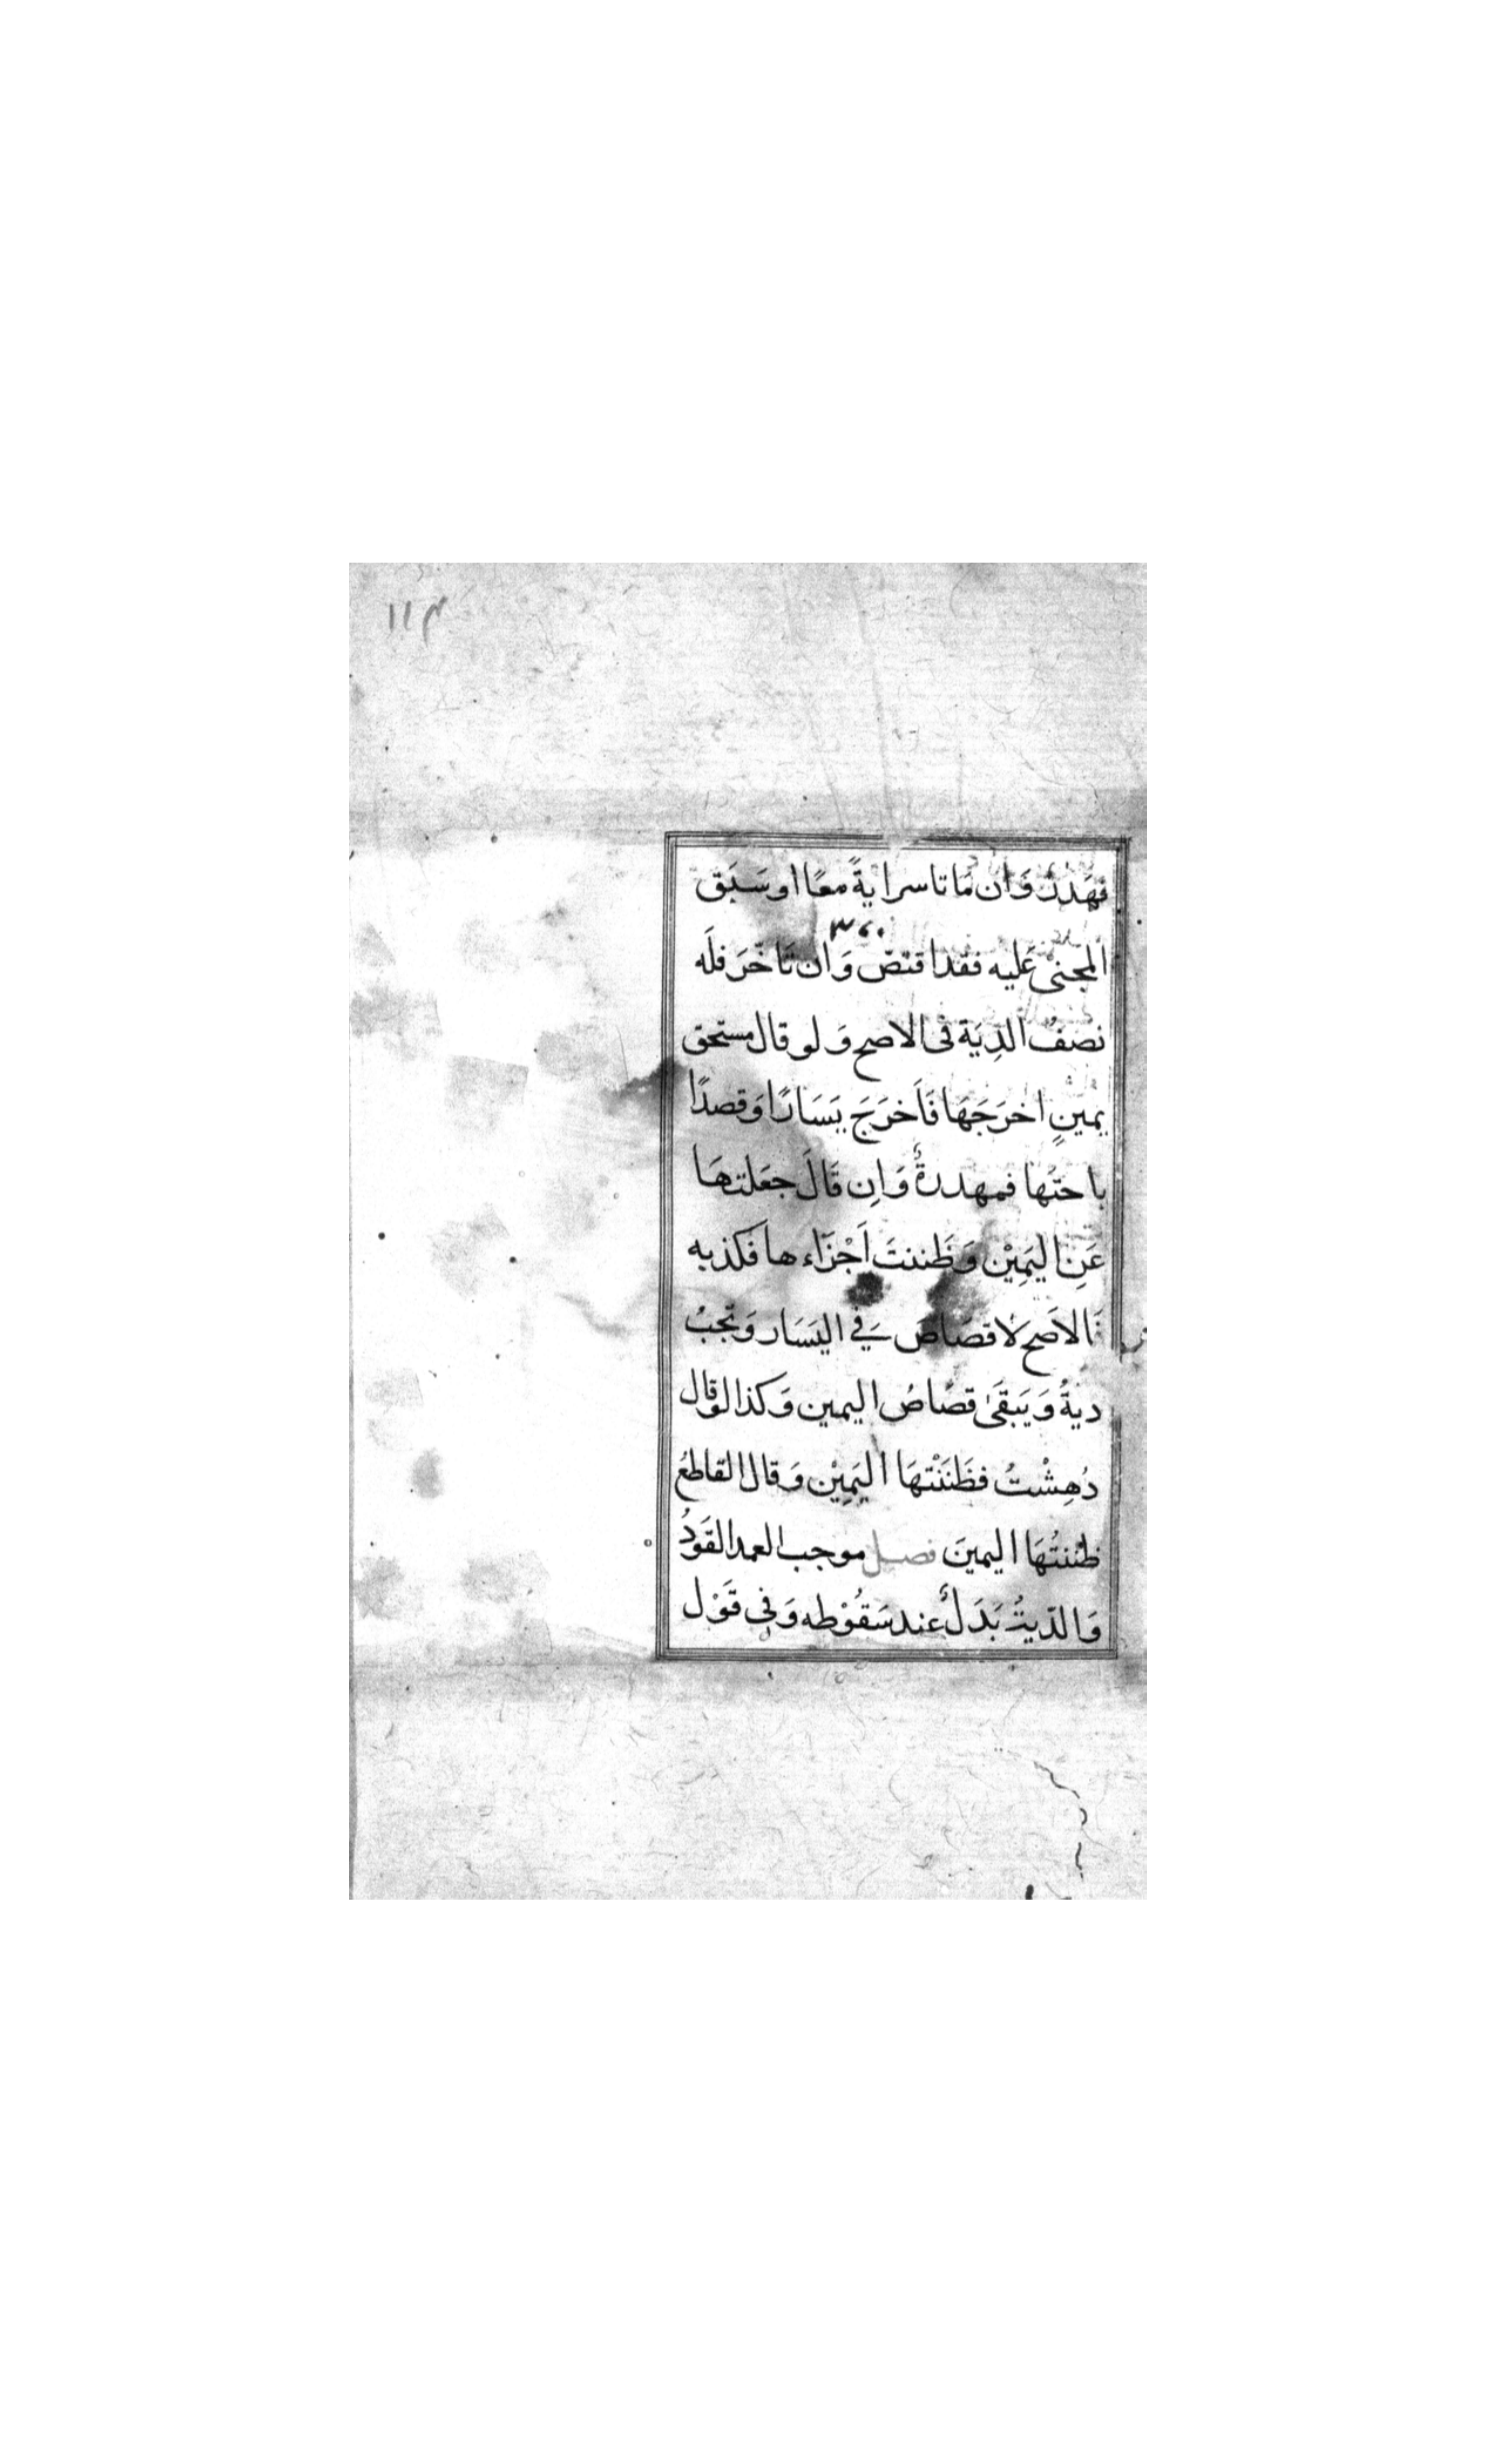 ١١٣
فهَدَرٌ وَان مَاتا سرايةً معًا او سَبَق
٣٧٠
المجنى عَليه فقد اقتصّ وَان تَاخّرَ فلَه
نصْفُ الدِيَة فى الاصح وَ لو قال مستحق
يمينٍ اخرَجَهَا فَاَخرَجَ يَسَارًا وَقصدًا
باحتَها فمهدرةٌ وَاِن قَالَ جعَلتهَا
عَنِ اليَمِيْن وَظَننتَ اَجْزَاءها فَكذبه
فالاَصح لا قصَاصَ فِي اليَسَار وَتجبُ
ديةٌ وَيَبقَى قصَاصُ اليمين وَكذا لوقال
دُهِشْتُ فظَنَنْتهَا اليَمِيْن وَقال القاطعُ
ظننتُهَا اليمينَ فصل موجب العمد القَوَدُ
وَالدّيةُ بَدَلٌ عند سَقُوْطه وَفِى قَوْل